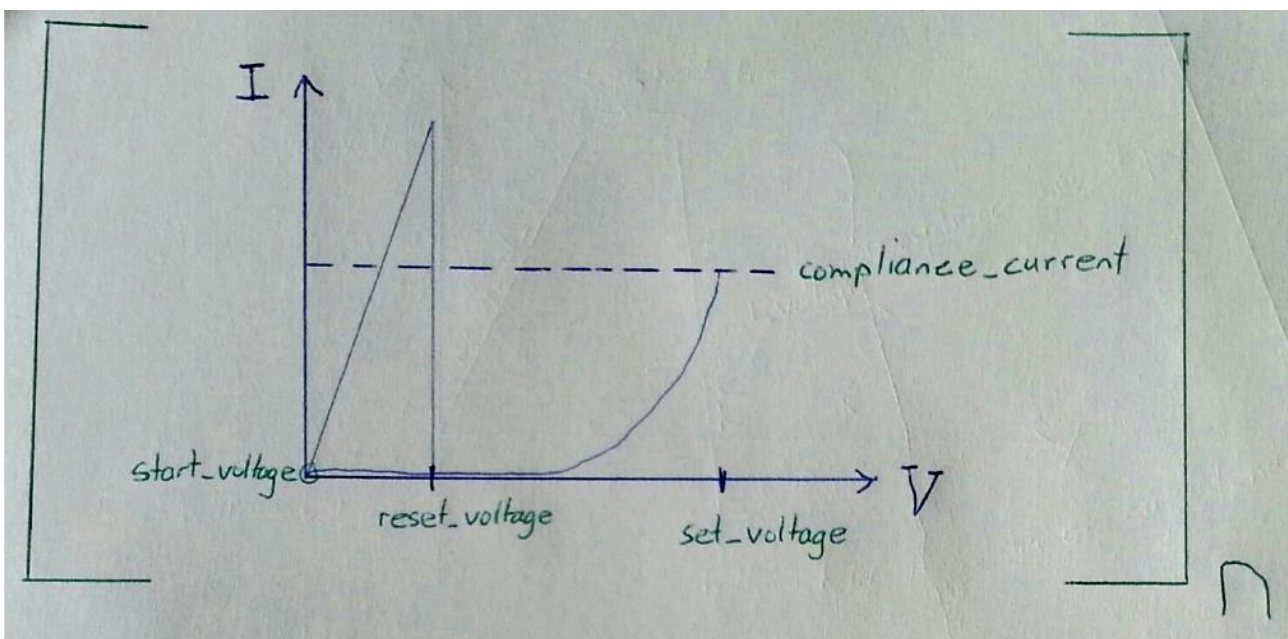 I
compliance_current
start_voltage
V
reset_voltage
set_voltage
n